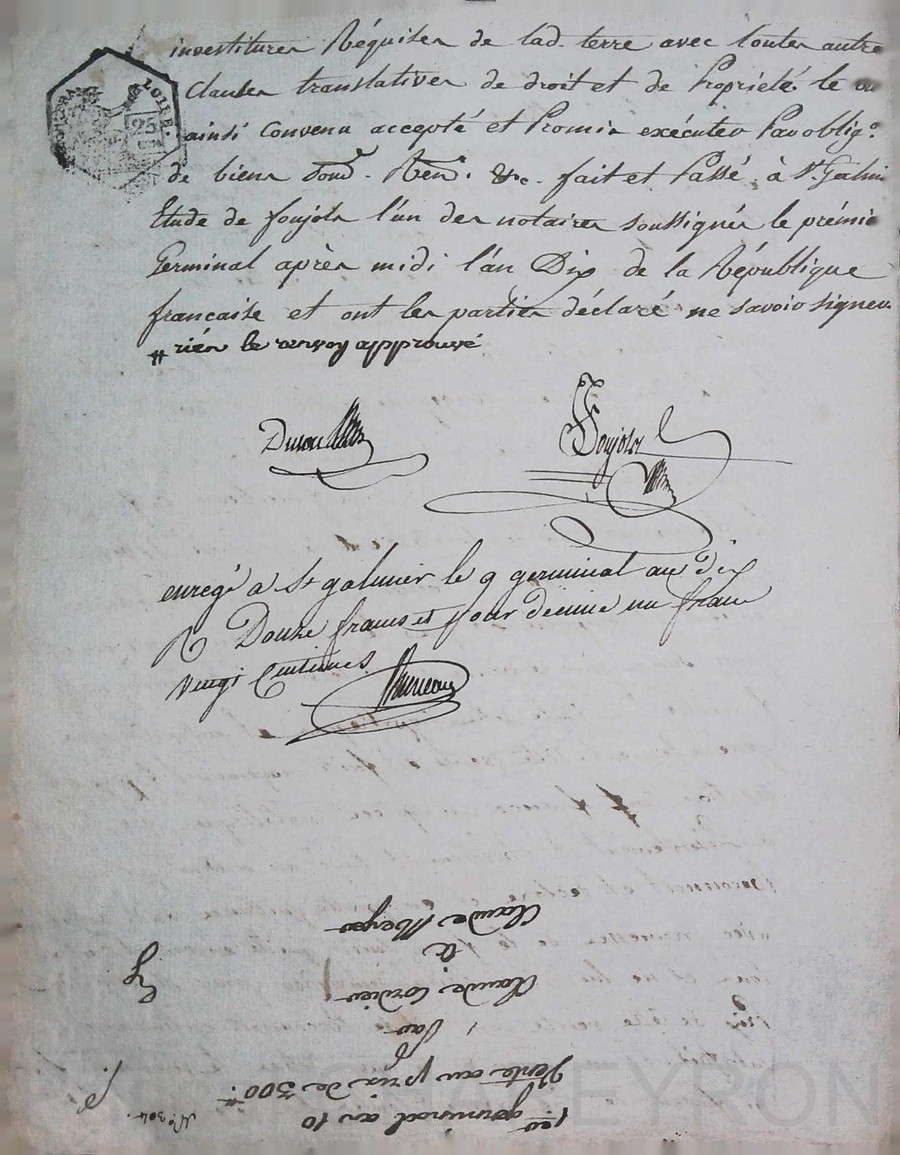 investitures Réquises de lad. terre avec toutes autre
Clauses translatives de droit et de Propriété. le
ainsi convenu accepté et Promis exécuter Par oblig.º
de biens Soum. Ren. &c. fait et Passé à St. Galmi
Etude de foujols l'un des notaires soussignés le prémie
Germinal après midi l'an Dix de la République
francaise et ont les parties déclaré ne savoir signer.
# rien le renvoy approuvé
LOIRE.
25
Foujols
enregé a St galmier le 9 germinal an dix
R Douze francs et pour décime un franc
vingt Centimes
1er germinal an 10
Vente au prix de 300
Par
Claude Cordier
à
Claude
Nº 304.
CHAREYRON